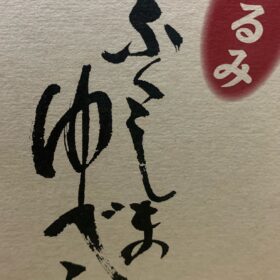 るみ
ふくしま
ゆべ